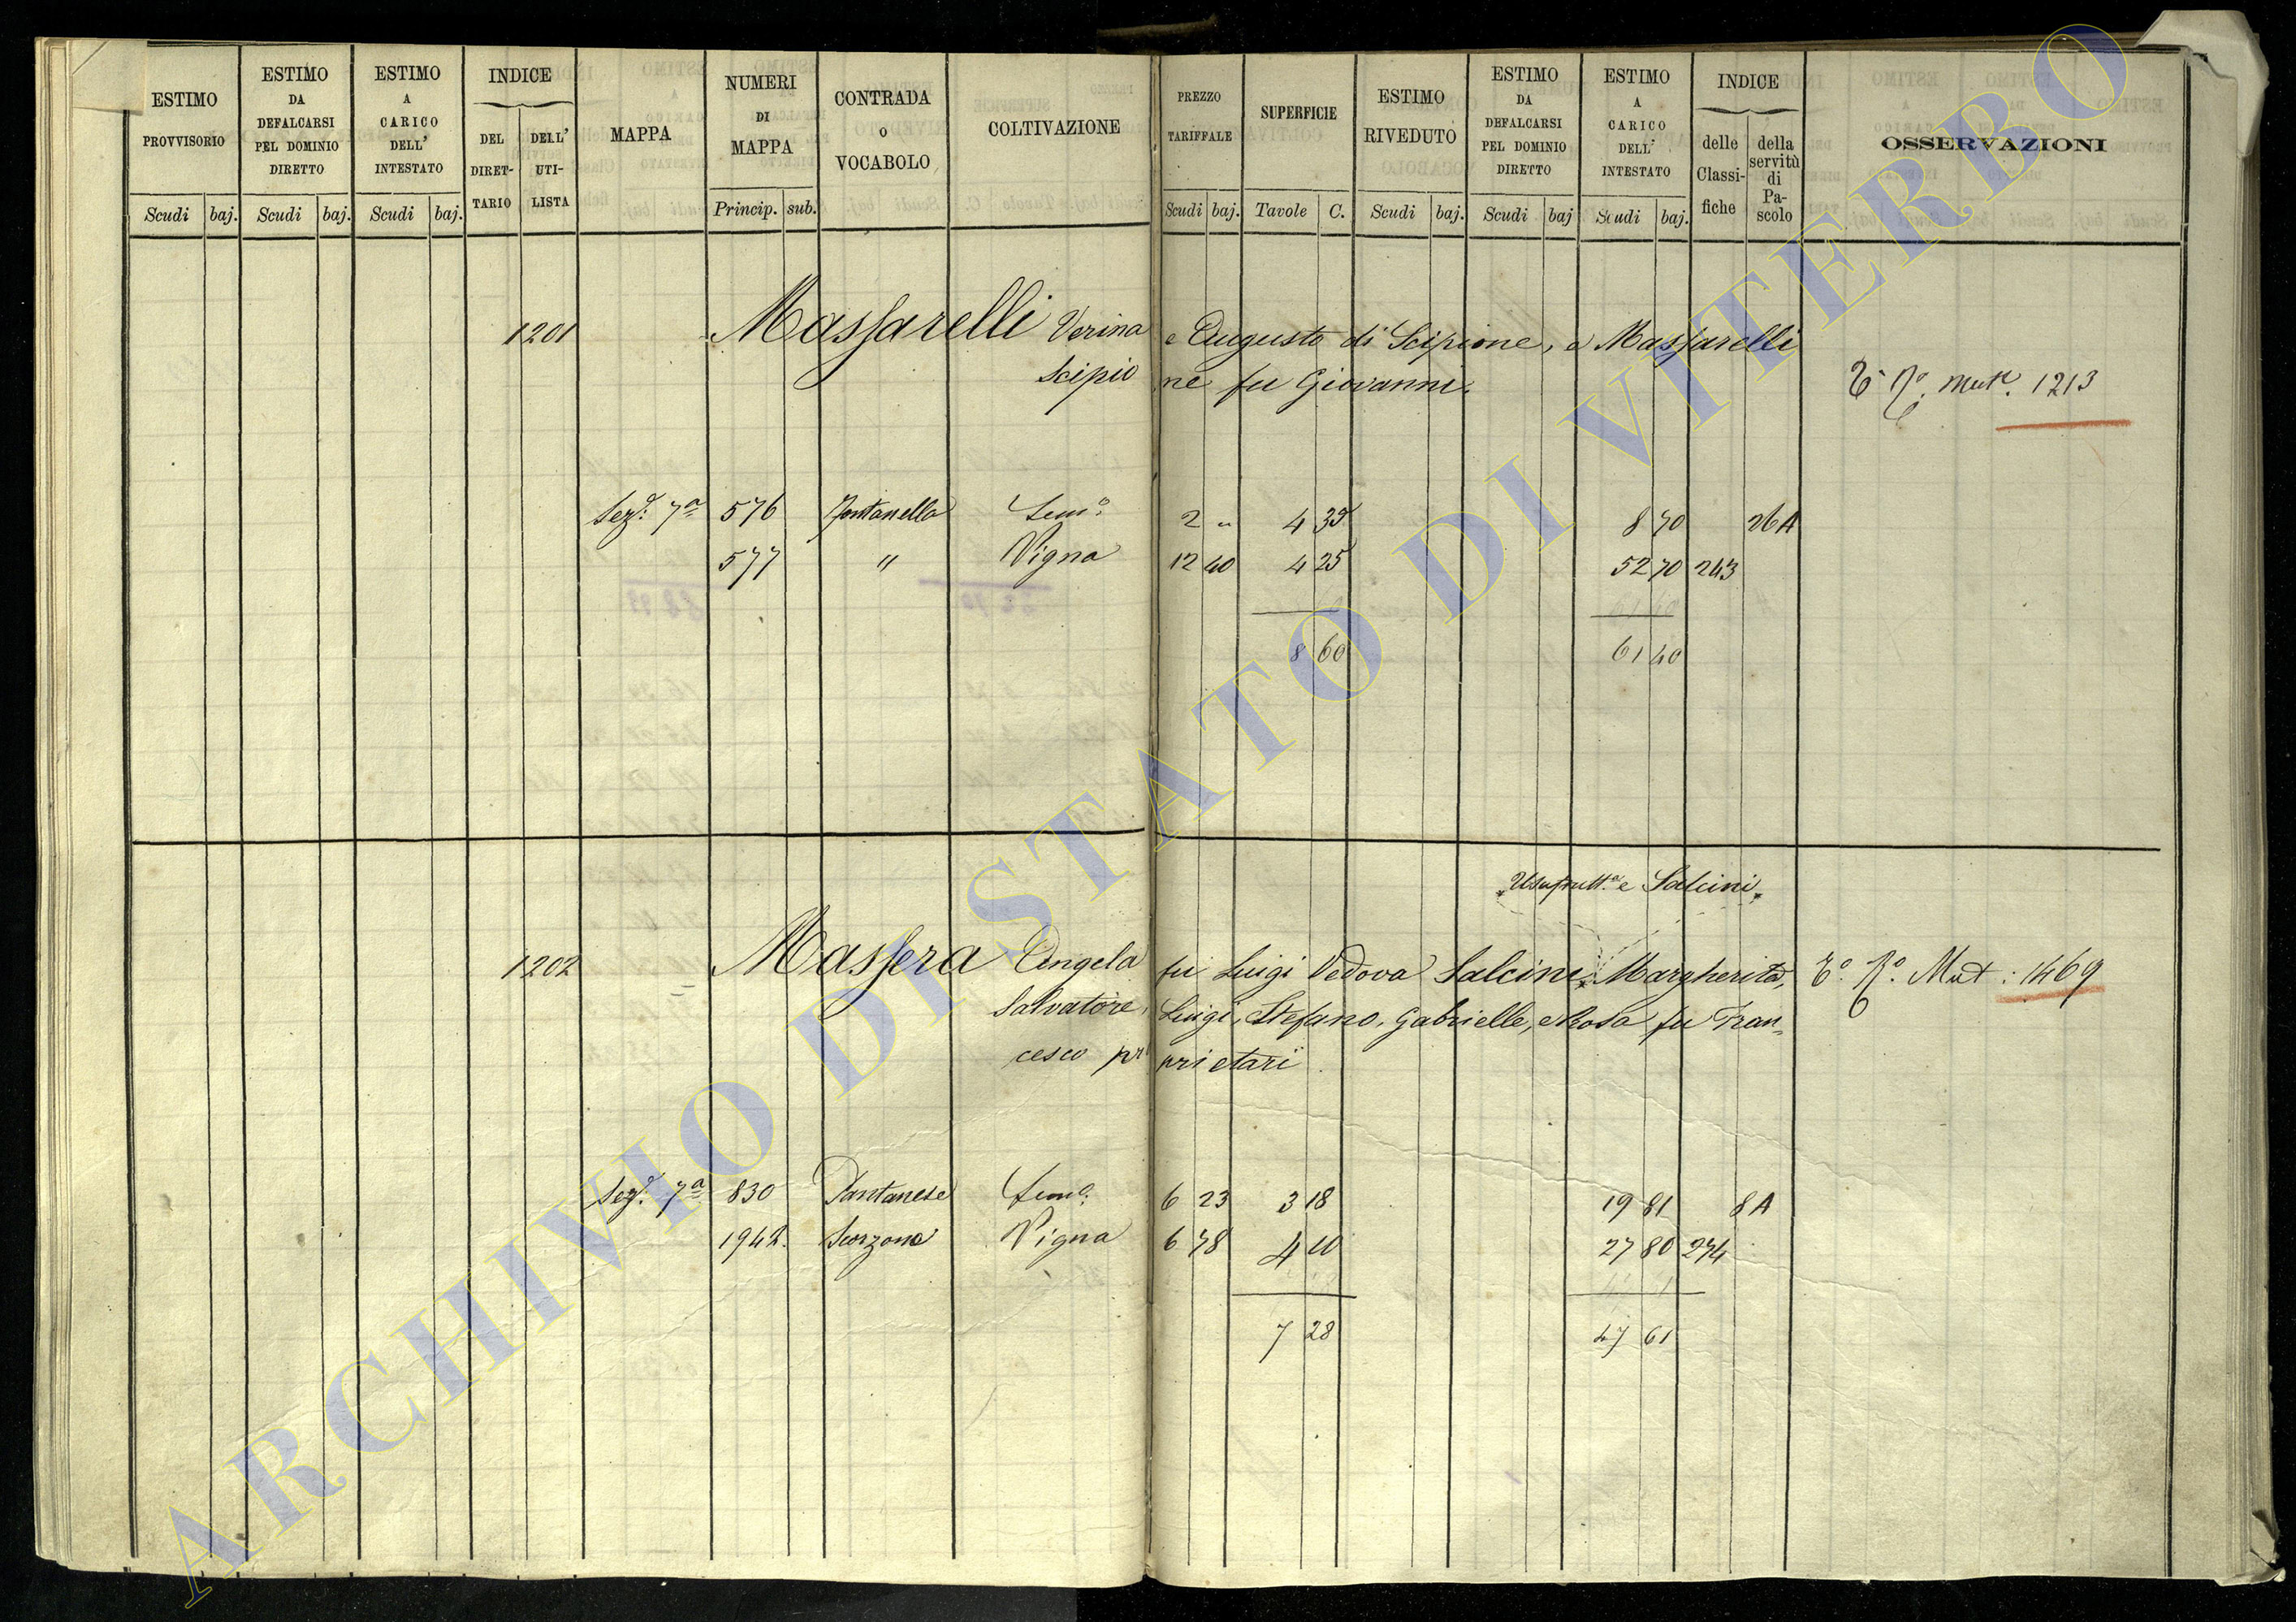 ESTIMO PROVVISORIO Scudi baj.
ESTIMO DA DEFALCARSI PEL DOMINIO DIRETTO Scudi baj.
ESTIMO A CARICO DELL' INTESTATO Scudi baj.
INDICE DEL DIRET- TARIO DELL' UTI- LISTA
MAPPA
NUMERI DI MAPPA Princip. sub.
CONTRADA O VOCABOLO
COLTIVAZIONE
PREZZO TARIFFALE Scudi baj.
SUPERFICIE Tavole C.
ESTIMO RIVEDUTO Scudi baj.
ESTIMO DA DEFALCARSI PEL DOMINIO DIRETTO Scudi baj
ESTIMO A CARICO DELL' INTESTATO Scudi baj.
INDICE delle Classi- fiche della servitù di Pa- scolo
OSSERVAZIONI
1201 Massarelli Verina e Augusto di Scipione, e Massarelli
Scipio ne fu Giovanni.
Mut. 1213
Sez. 7a 576 Fontanella Sem.o 2 " 4 35 8 70 26 A
577 " Vigna 12 40 4 25 52 70 243
8 60 61 40
Usufrutt.a e Salcini
1202 Massera Angela fu Luigi Vedova Salcini Margherita, Mut: 1469
Salvatore, Luigi, Stefano, Gabrielle, e Rosa fu Fran
cesco pr prietari
Sez. 7a 830 Pantanese Sem.o 6 23 3 18 19 81 8 A
1942. Scorzone Vigna 6 78 4 10 27 80 274
7 28 47 61
ARCHIVIO DI STATO DI VITERBO